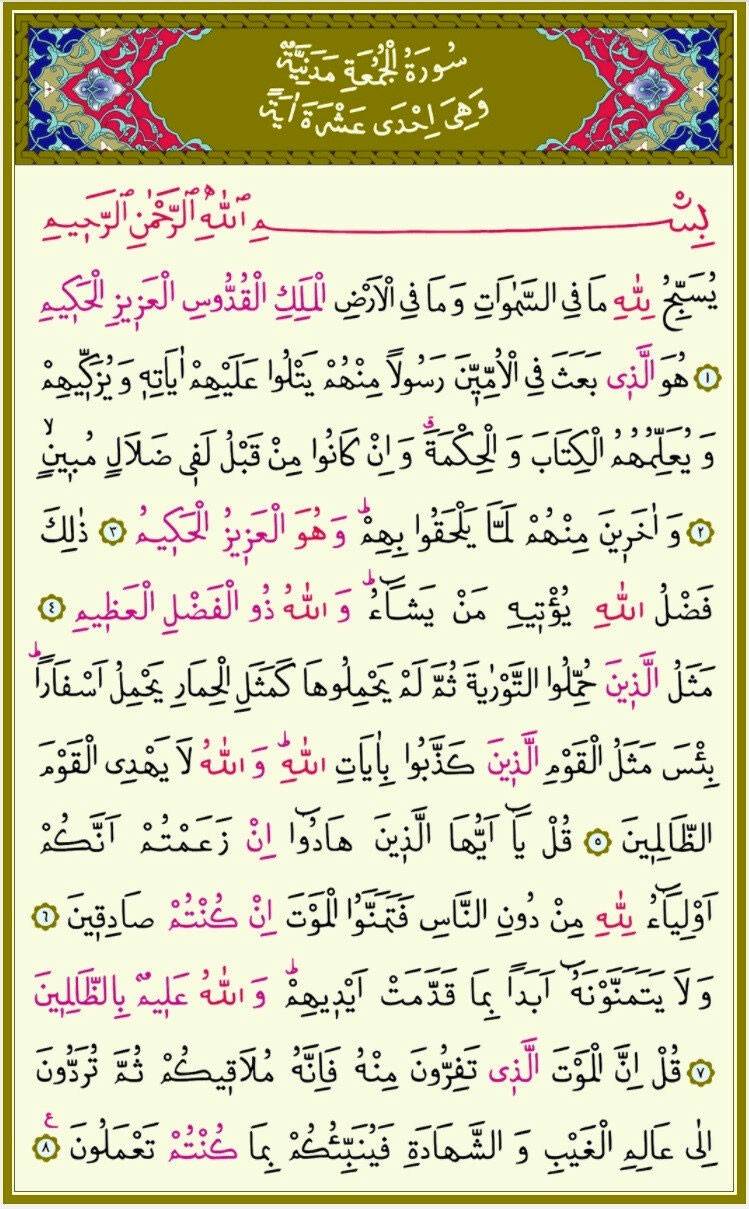 سُورَةُ الْجُمُعَةِ مَدَنِيَّةٌ
وَهِيَ اِحْدَى عَشْرَةَ اٰيَةً
بِسْمِ ٱللّٰهِ ٱلرَّحْمٰنِ ٱلرَّح۪يمِ
يُسَبِّحُ لِلّٰهِ مَا فِي السَّمٰوَاتِ وَمَا فِي الْاَرْضِ الْمَلِكِ الْقُدُّوسِ الْعَز۪يزِ الْحَك۪يمِ
١ هُوَ الَّذ۪ي بَعَثَ فِي الْاُمِّيّ۪نَ رَسُولاً مِنْهُمْ يَتْلُوا عَلَيْهِمْ اٰيَاتِه۪ وَيُزَكّ۪يهِمْ
وَيُعَلِّمُهُمُ الْكِتَابَ وَالْحِكْمَةَۗ وَاِنْ كَانُوا مِنْ قَبْلُ لَف۪ي ضَلَالٍ مُب۪ينٍۙ
٢ وَاٰخَر۪ينَ مِنْهُمْ لَمَّا يَلْحَقُوا بِهِمْۜ وَهُوَ الْعَز۪يزُ الْحَك۪يمُ ٣ ذٰلِكَ
فَضْلُ اللّٰهِ يُؤْت۪يهِ مَنْ يَشَٓاءُۜ وَاللّٰهُ ذُو الْفَضْلِ الْعَظ۪يمِ ٤
مَثَلُ الَّذ۪ينَ حُمِّلُوا التَّوْرٰيةَ ثُمَّ لَمْ يَحْمِلُوهَا كَمَثَلِ الْحِمَارِ يَحْمِلُ اَسْفَاراًۜ
بِئْسَ مَثَلُ الْقَوْمِ الَّذ۪ينَ كَذَّبُوا بِاٰيَاتِ اللّٰهِۜ وَاللّٰهُ لَا يَهْدِي الْقَوْمَ
الظَّالِم۪ينَ ٥ قُلْ يَٓا اَيُّهَا الَّذ۪ينَ هَادُٓوا اِنْ زَعَمْتُمْ اَنَّكُمْ
اَوْلِيَٓاءُ لِلّٰهِ مِنْ دُونِ النَّاسِ فَتَمَنَّوُا الْمَوْتَ اِنْ كُنْتُمْ صَادِق۪ينَ ٦
وَلَا يَتَمَنَّوْنَهُٓ اَبَداً بِمَا قَدَّمَتْ اَيْد۪يهِمْۜ وَاللّٰهُ عَل۪يمٌ بِالظَّالِم۪ينَ
٧ قُلْ اِنَّ الْمَوْتَ الَّذ۪ي تَفِرُّونَ مِنْهُ فَاِنَّهُ مُلَاق۪يكُمْ ثُمَّ تُرَدُّونَ
اِلٰى عَالِمِ الْغَيْبِ وَالشَّهَادَةِ فَيُنَبِّئُكُمْ بِمَا كُنْتُمْ تَعْمَلُونَ ٨ ع